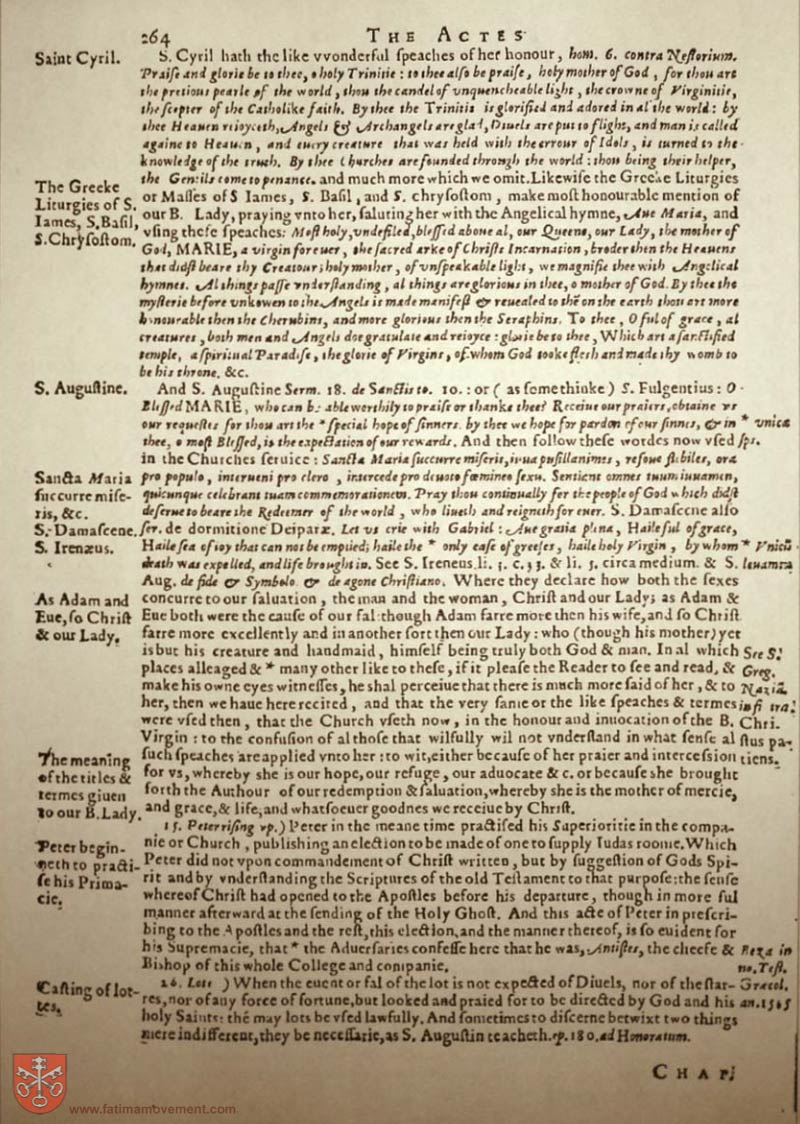 264 THE ACTES
Saint Cyril.
S. Cyril hath the like vvonderful ſpeaches of her honour, hom. 6. contra Neſtorium.
Praiſe and glorie be to thee, o holy Trinitie : to thee alſo be praiſe, holy mother of God, for thou art
the pretious pearle of the world, thou the candel of vnquencheable light, the crowne of Virginitie,
the ſcepter of the Catholike faith. By thee the Trinitie is glorified and adored in al the world : by
thee Heauen reioyceth, Angels & Archangels are glad, Diuels are put to flight, and man is called
againe to Heauen, and euery creature that was held with the errour of Idols, is turned to the
knowledge of the truth. By thee Churches are founded through the world : thou being their helper,
the Gentils come to penance. and much more which we omit. Likewiſe the Greeke Liturgies
The Greeke
Liturgies of S.
Iames, S. Baſil,
S. Chryſoſtom.
or Maſſes of S Iames, S. Baſil, and S. chryſoſtom, make moſt honourable mention of
our B. Lady, praying vnto her, ſaluting her with the Angelical hymne, Aue Maria, and
vſing theſe ſpeaches: Moſt holy, vndefiled, bleſſed aboue al, our Queene, our Lady, the mother of
God, MARIE, a virgin for euer, the ſacred arke of Chriſts Incarnation, broder then the Heauens
that didſt beare thy Creatour; holy mother, of vnſpeakable light, we magnifie thee with Angelical
hymnes. Al things paſſe vnderſtanding, al things are glorious in thee, o mother of God. By thee the
myſterie before vnkowen to the Angels is made manifeſt & reuealed to thē on the earth thou art more
honourable then the Cherubins, and more glorious then the Seraphins. To thee, O ful of grace, al
creatures, both men and Angels doe gratulate and reioyce : glorie be to thee, Which art a ſanctified
temple, a ſpiritual Paradiſe, the glorie of Virgins, of whom God tooke fleſh and made thy womb to
be his throne. &c.
S. Auguſtine.
And S. Auguſtine Serm. 18. de Sanctis to. 10. : or ( as ſome thinke) S. Fulgentius : O
Bleſſed MARIE, who can be able worthily to praiſe or thanke thee? Receiue our praiers, obtaine vs
our requeſtes for thou art the * ſpecial hope of ſinners. by thee we hope for pardon of our ſinnes, & in * vnica
thee, o moſt Bleſſed, is the expectation of our rewards. And then follow theſe wordes now vſed ſps.
in the Churches ſeruice : Sancta Maria ſuccurre miſeris, iuua puſillanimes, refoue flebiles, ora
Sancta Maria
ſuccurre miſe-
ris, &c.
pro populo, interueni pro clero, intercede pro deuoto fœmineo ſexu. Sentiant omnes tuum iuuamen,
quicunque celebrant tuam commemorationem. Pray thou continually for the people of God which didſt
deſerue to beare the Redeemer of the world, who liueth and reigneth for euer. S. Damaſcene alſo
S. Damaſcene.
ſer. de dormitione Deiparæ. Let vs crie with Gabriel : Aue gratia plena, Haile ful of grace,
S. Irenæus.
Haile ſea of ioy that can not be emptied; haile the * only eaſe of greefes, haile holy Virgin, by whom * Vnicū
death was expelled, and life brought in. See S. Ireneus li. 3. c. 33. & li. 5. circa medium. & S. leuamen
Aug. de fide & Symbolo & de agone Chriſtiano. Where they declare how both the ſexes
As Adam and
Eue, ſo Chriſt
& our Lady.
concurre to our ſaluation, the man and the woman, Chriſt and our Lady; as Adam &
Eue both were the cauſe of our fal: though Adam farre more then his wife, and ſo Chriſt
farre more excellently and in another ſort then our Lady: who (though his mother) yet
is but his creature and handmaid, himſelf being truly both God & man. In al which See S.
places alleaged & * many other like to theſe, if it pleaſe the Reader to ſee and read, & Greg.
make his owne eyes witneſſes, he shal perceiue that there is much more ſaid of her, & to Naziā.
her, then we haue here recited, and that the very ſame or the like ſpeaches & termes in fi tra.
were vſed then, that the Church vſeth now, in the honour and inuocation of the B. Chri.
Virgin : to the confuſion of al thoſe that wilfully wil not vnderſtand in what ſenſe al ſtus pa-
ſuch ſpeaches are applied vnto her : to wit, either becauſe of her praier and interceſsion tiens.
The meaning
of the titles &
termes giuen
to our B. Lady.
for vs, whereby she is our hope, our refuge, our aduocate & c. or becauſe she brought
forth the Authour of our redemption & ſaluation, whereby she is the mother of mercie,
and grace, & life, and whatſoeuer goodnes we receiue by Chriſt.
15. Peter riſing vp.) Peter in the meane time practiſed his Superioritie in the compa-
Peter begin-
neth to practi-
ſe his Prima-
cie.
nie or Church, publishing an election to be made of one to ſupply Iudas roome. Which
Peter did not vpon commandement of Chriſt written, but by ſuggeſtion of Gods Spi-
rit and by vnderſtanding the Scriptures of the old Teſtament to that purpoſe: the ſenſe
whereof Chriſt had opened to the Apoſtles before his departure, though in more ful
manner afterward at the ſending of the Holy Ghoſt. And this acte of Peter in preſcri-
bing to the Apoſtles and the reſt, this election, and the manner thereof, is ſo euident for
his Supremacie, that * the Aduerſaries confeſſe here that he was, Antiſtes, the cheefe & Beza in
Bishop of this whole College and companie. no. Teſt.
Caſting of lot-
tes.
26. Lots ) When the euent or fal of the lot is not expected of Diuels, nor of the ſtar- Græcol.
res, nor of any force of fortune, but looked and praied for to be directed by God and his an. 1565
holy Saints: thē may lots be vſed lawfully. And ſometimes to diſcerne betwixt two things
mere indifferent, they be neceſſarie, as S. Auguſtin teacheth. ep. 180. ad Honoratum.
CHAP.
www.fatimamovement.com